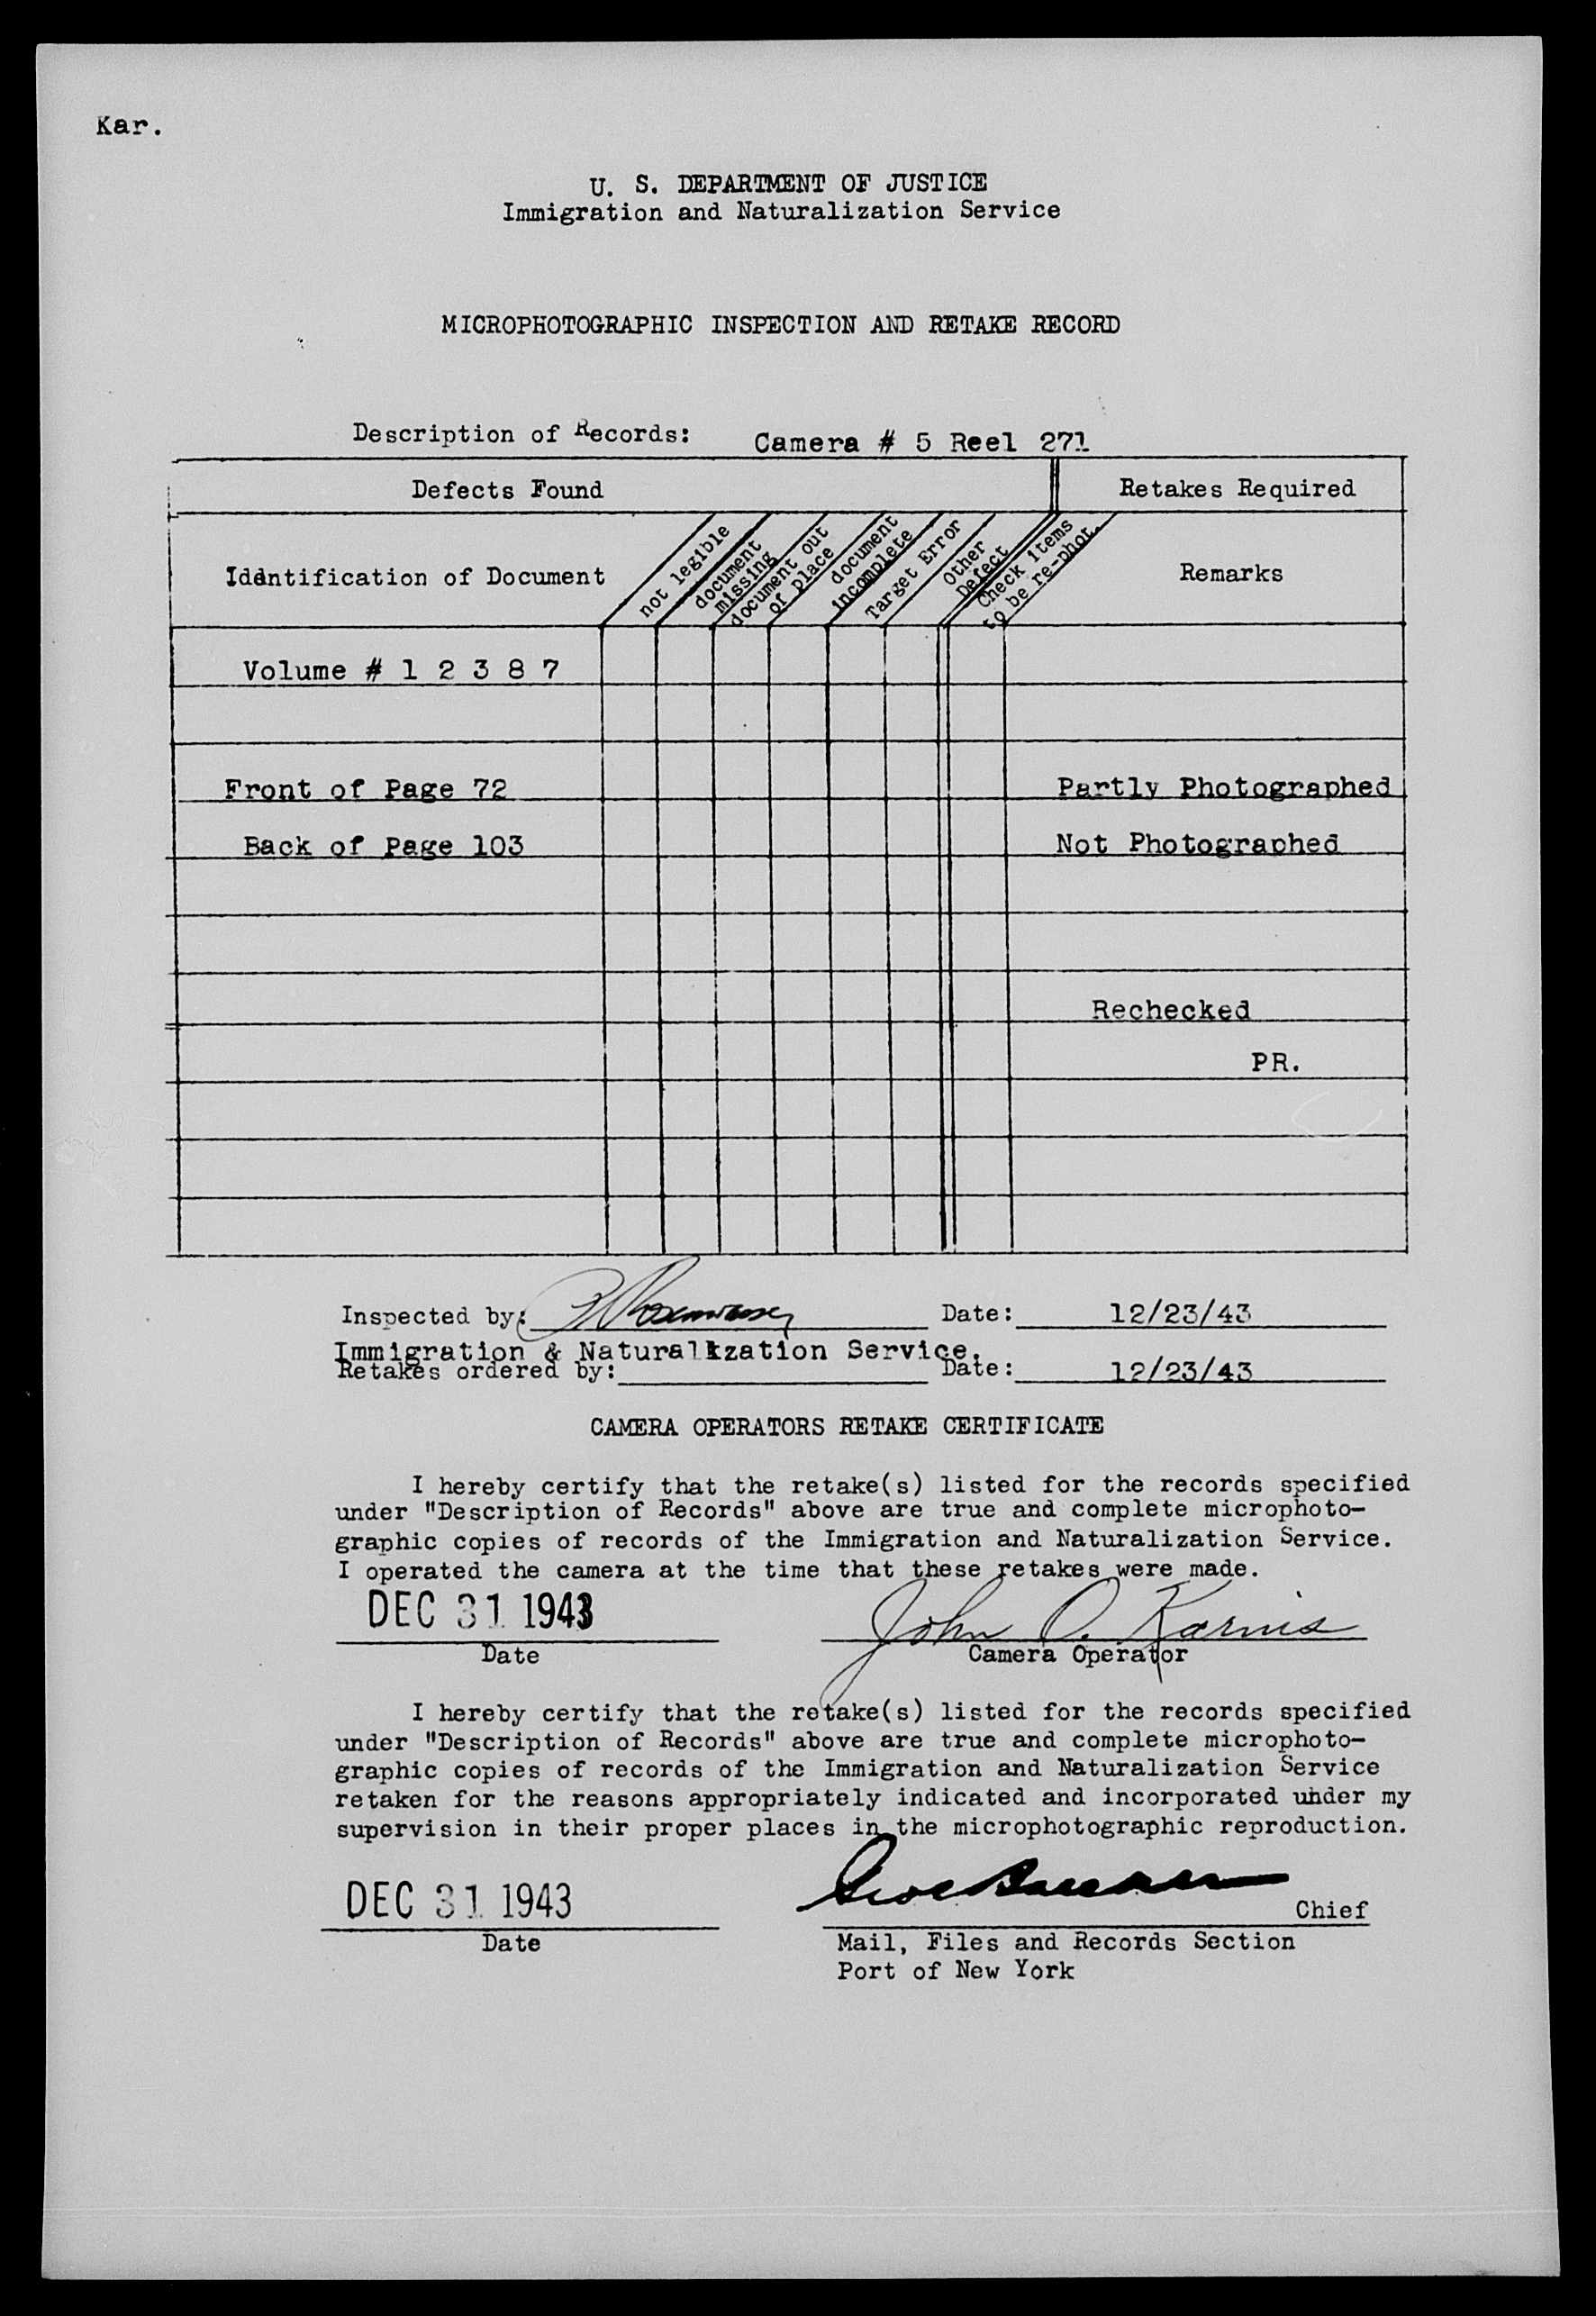 Kar.
U. S. DEPARTMENT OF JUSTICE
Immigration and Naturalization Service
MICROPHOTOGRAPHIC INSPECTION AND RETAKE RECORD
Description of Records: Camera # 5 Reel 271
Defects Found Retakes Required
Iddntification of Document
not legible
document
missing
document out
of place
document
incomplete
Target Error
Other
Defect
Check items
to be re-phot.
Remarks
Volume # 1 2 3 8 7
Front of Page 72 Partly Photographed
Back of Page 103 Not Photographed
Rechecked
PR.
Inspected by: Date: 12/23/43
Immigration & Naturalization Service.
Retakes ordered by: Date: 12/23/43
CAMERA OPERATORS RETAKE CERTIFICATE
I hereby certify that the retake(s) listed for the records specified
under "Description of Records" above are true and complete microphoto-
graphic copies of records of the Immigration and Naturalization Service.
I operated the camera at the time that these retakes were made.
DEC 31 1943 John O. Karnis
Date Camera Operator
I hereby certify that the retake(s) listed for the records specified
under "Description of Records" above are true and complete microphoto-
graphic copies of records of the Immigration and Naturalization Service
retaken for the reasons appropriately indicated and incorporated under my
supervision in their proper places in the microphotographic reproduction.
DEC 31 1943 Chief
Date Mail, Files and Records Section
Port of New York